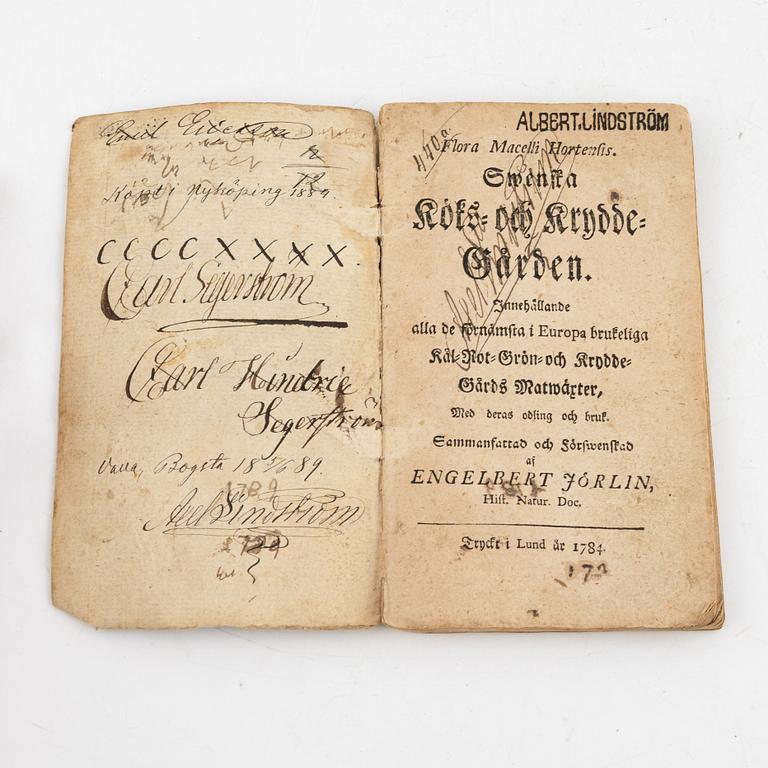 Köpt i Nyköping 1889.
C C C C X X X X.
Carl Segerström
Carl Hindric
Segerström
Valla, Bogsta 18 5/6 89.
1784
Axel Lindström
1784
ALBERT.LINDSTRÖM
440a
Flora Macelli Hortensis.
Swenska
Köks- och Krydde-
Gården.
Innehållande
alla de förnämsta i Europa brukeliga
Kål-Rot-Grön-och Krydde-
Gårds Matwäxter,
Med deras odling och bruk.
Sammanfattad och Förswenskad
af
ENGELBERT JÖRLIN,
Hist. Natur. Doc.
Tryckt i Lund år 1784.
172